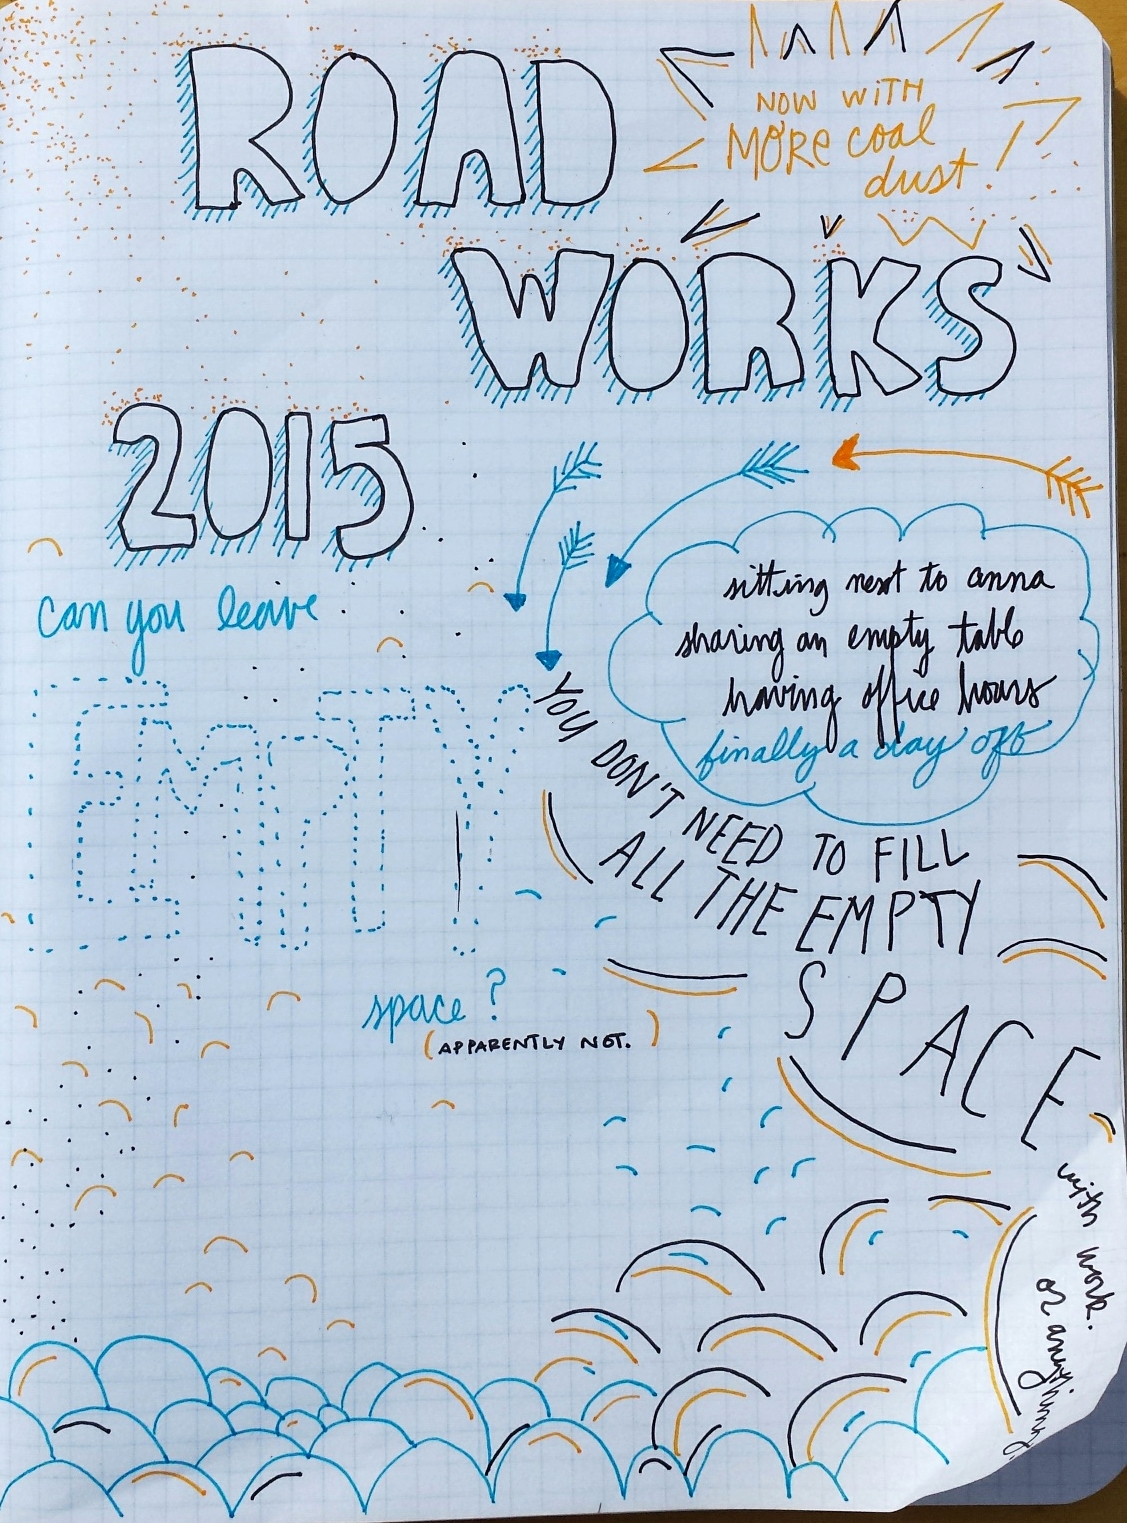 ROAD
WORKS
2015
NOW WITH
MORE coal
dust!
can you leave
EMPTY
space?
(APPARENTLY NOT.)
sitting next to anna
sharing an empty table
having office hours
finally a day off
YOU DON'T NEED TO FILL
ALL THE EMPTY
SPACE
with work.
or anything.